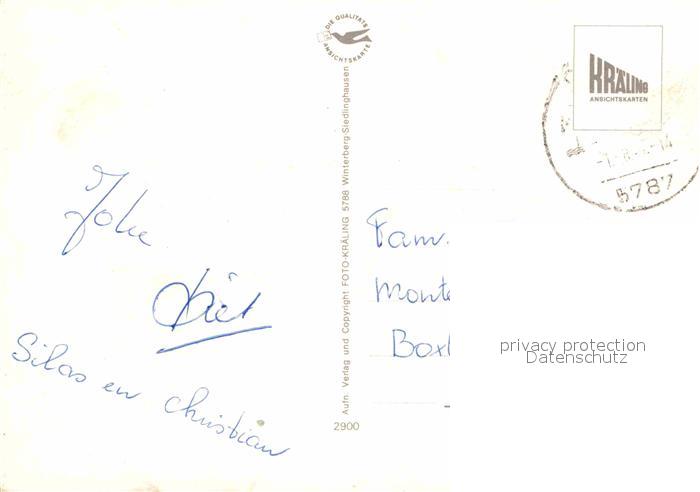 Joke
Piet
Silas en Christian
DIE QUALITÄTS
ANSICHTSKARTE
Aufn. Verlag und Copyright FOTO-KRÄLING 5788 Winterberg-Siedlinghausen
2900
KRÄLING
ANSICHTSKARTEN
5787
Fam.
Monte
Boxt
privacy protection
Datenschutz